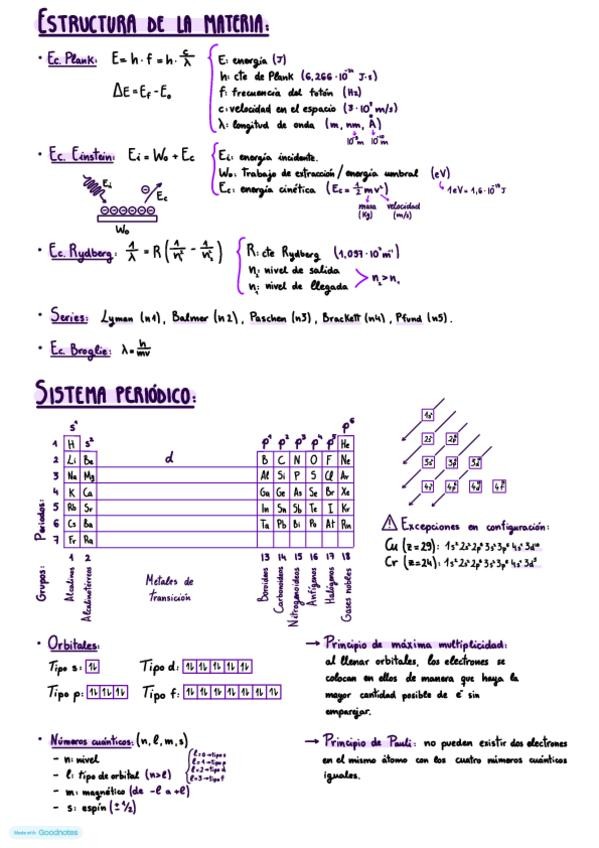 ESTRUCTURA DE LA MATERIA:
• Ec. Plank: E = h · f = h · c/λ
ΔE = Ef - E₀
E: energía (J)
h: cte de Plank (6,266·10⁻³⁴ J·s)
f: frecuencia del fotón (Hz)
c: velocidad en el espacio (3·10⁸ m/s)
λ: longitud de onda (m, nm, Å)
10⁻⁹m 10⁻¹⁰m
• Ec. Einstein: Ei = W₀ + Ec
Ei: energía incidente.
W₀: Trabajo de extracción/energía umbral (eV)
1eV = 1,6·10⁻¹⁹J
Ec: energía cinética (Ec = 1/2 mv²)
masa (kg) velocidad (m/s)
Ei
Ec
W₀
• Ec. Rydberg: 1/λ = R (1/n₁² - 1/n₂²)
R: cte Rydberg (1,097·10⁷m⁻¹)
n₂: nivel de salida
n₁: nivel de llegada
n₂ > n₁
• Series: Lyman (n1), Balmer (n2), Paschen (n3), Brackett (n4), Pfund (n5).
• Ec. Broglie: λ = h/mv
SISTEMA PERIÓDICO:
s¹ p⁶
1 H s² p¹ p² p³ p⁴ p⁵ He
2 Li Be d B C N O F Ne
3 Na Mg Al Si P S Cl Ar
4 K Ca Ga Ge As Se Br Xe
5 Rb Sr In Sn Sb Te I Kr
6 Cs Ba Ta Pb Bi Po At Rn
7 Fr Ra
Períodos:
1 2 13 14 15 16 17 18
Grupos:
Alcalinos
Alcalinotérreos
Metales de
transición
Boroideos
Carbonoideos
Nitrogenoideos
Anfígenos
Halógenos
Gases nobles
1s
2s 2p
3s 3p 3d
4s 4p 4d 4f
⚠ Excepciones en configuración:
Cu (z=29): 1s² 2s² 2p⁶ 3s² 3p⁶ 4s¹ 3d¹⁰
Cr (z=24): 1s² 2s² 2p⁶ 3s² 3p⁶ 4s¹ 3d⁵
• Orbitales:
Tipo s: Tipo d:
Tipo p: Tipo f:
→ Principio de máxima multiplicidad:
al llenar orbitales, los electrones se
colocan en ellos de manera que haya la
mayor cantidad posible de e⁻ sin
emparejar.
• Números cuánticos: (n, l, m, s)
- n: nivel
- l: tipo de orbital (n>l)
l=0→tipo s
l=1→tipo p
l=2→tipo d
l=3→tipo f
- m: magnético (de -l a +l)
- s: espín (± 1/2)
→ Principio de Pauli: no pueden existir dos electrones
en el mismo átomo con los cuatro números cuánticos
iguales.
Made with Goodnotes